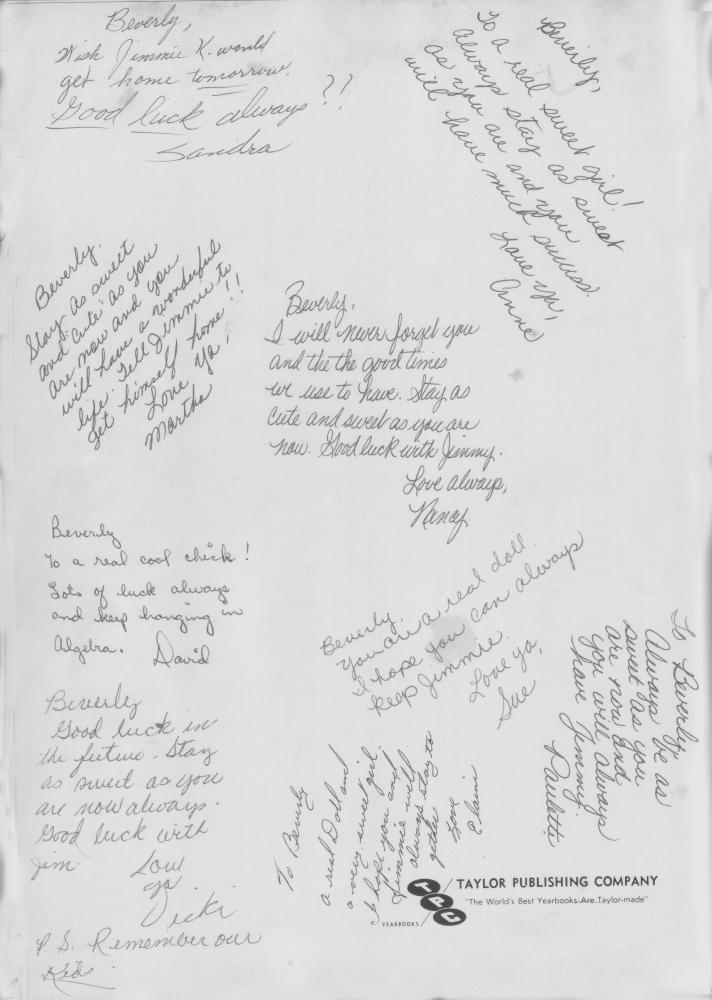 Beverly,
Wish Jimmie K. would
get home tomorrow.
Good luck always ??
Sandra
Beverly,
To a real sweet girl!
Always stay as sweet
as you are and you
will have much success.
Love ya,
Anne
Beverly.
Stay as sweet
and "cute" as you
are now and you
will have a wonderful
life. Tell Jimmie to
get himself home!!
Love Ya,
Martha
Beverly,
I will never forget you
and the the good times
we use to have. Stay as
cute and sweet as you are
now. Good luck with Jimmy.
Love always,
Nancy
Beverly
To a real cool chick!
Lots of luck always
and keep hanging in
Algebra.
David
Beverly.
You are a real doll.
I hope you can always
keep Jimmie.
Love ya,
Sue
To Beverly
Always be as
sweet as you
are now and
you will always
have Jimmy.
Paulette
Beverly
Good luck in
the future. Stay
as sweet as you
are now always.
Good luck with
Jim.
Love
ya.
Dicki
P S. Remember our
Kids.
To Beverly
a real Doll and
a very sweet girl
I hope you and
Jimmie will
always stay to
gether
Love
Elaine
TPC
YEARBOOKS
TAYLOR PUBLISHING COMPANY
"The World's Best Yearbooks Are Taylor-made"